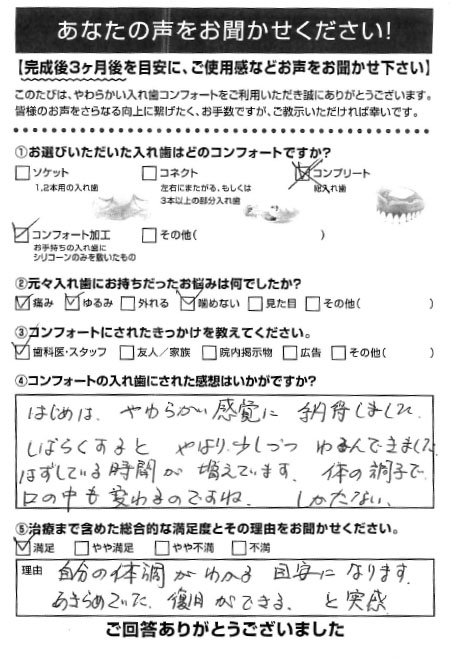 あなたの声をお聞かせください!
【完成後3ヶ月後を目安に、ご使用感などお声をお聞かせ下さい】
このたびは、やわらかい入れ歯コンフォートをご利用いただき誠にありがとうございます。
皆様のお声をさらなる向上に繋げたく、お手数ですが、ご教示いただければ幸いです。
①お選びいただいた入れ歯はどのコンフォートですか?
ソケット コネクト コンプリート
1,2本用の入れ歯 左右にまたがる、もしくは 総入れ歯
3本以上の部分入れ歯
コンフォート加工 その他( )
お手持ちの入れ歯に
シリコーンのみを敷いたもの
②元々入れ歯にお持ちだったお悩みは何でしたか?
痛み ゆるみ 外れる 噛めない 見た目 その他( )
③コンフォートにされたきっかけを教えてください。
歯科医・スタッフ 友人/家族 院内掲示物 広告 その他( )
④コンフォートの入れ歯にされた感想はいかがですか?
はじめは、やわらかい感覚に 納得しました
しばらくすると やはり少しづつ ゆるんできました
はずしている時間が 増えています。体の調子で
口の中も変わるのですね。しかたない。
⑤治療まで含めた総合的な満足度とその理由をお聞かせください。
満足 やや満足 やや不満 不満
理由 自分の体調がわかる 目安になります。
あきらめていた、復旧ができる。と実感
ご回答ありがとうございました